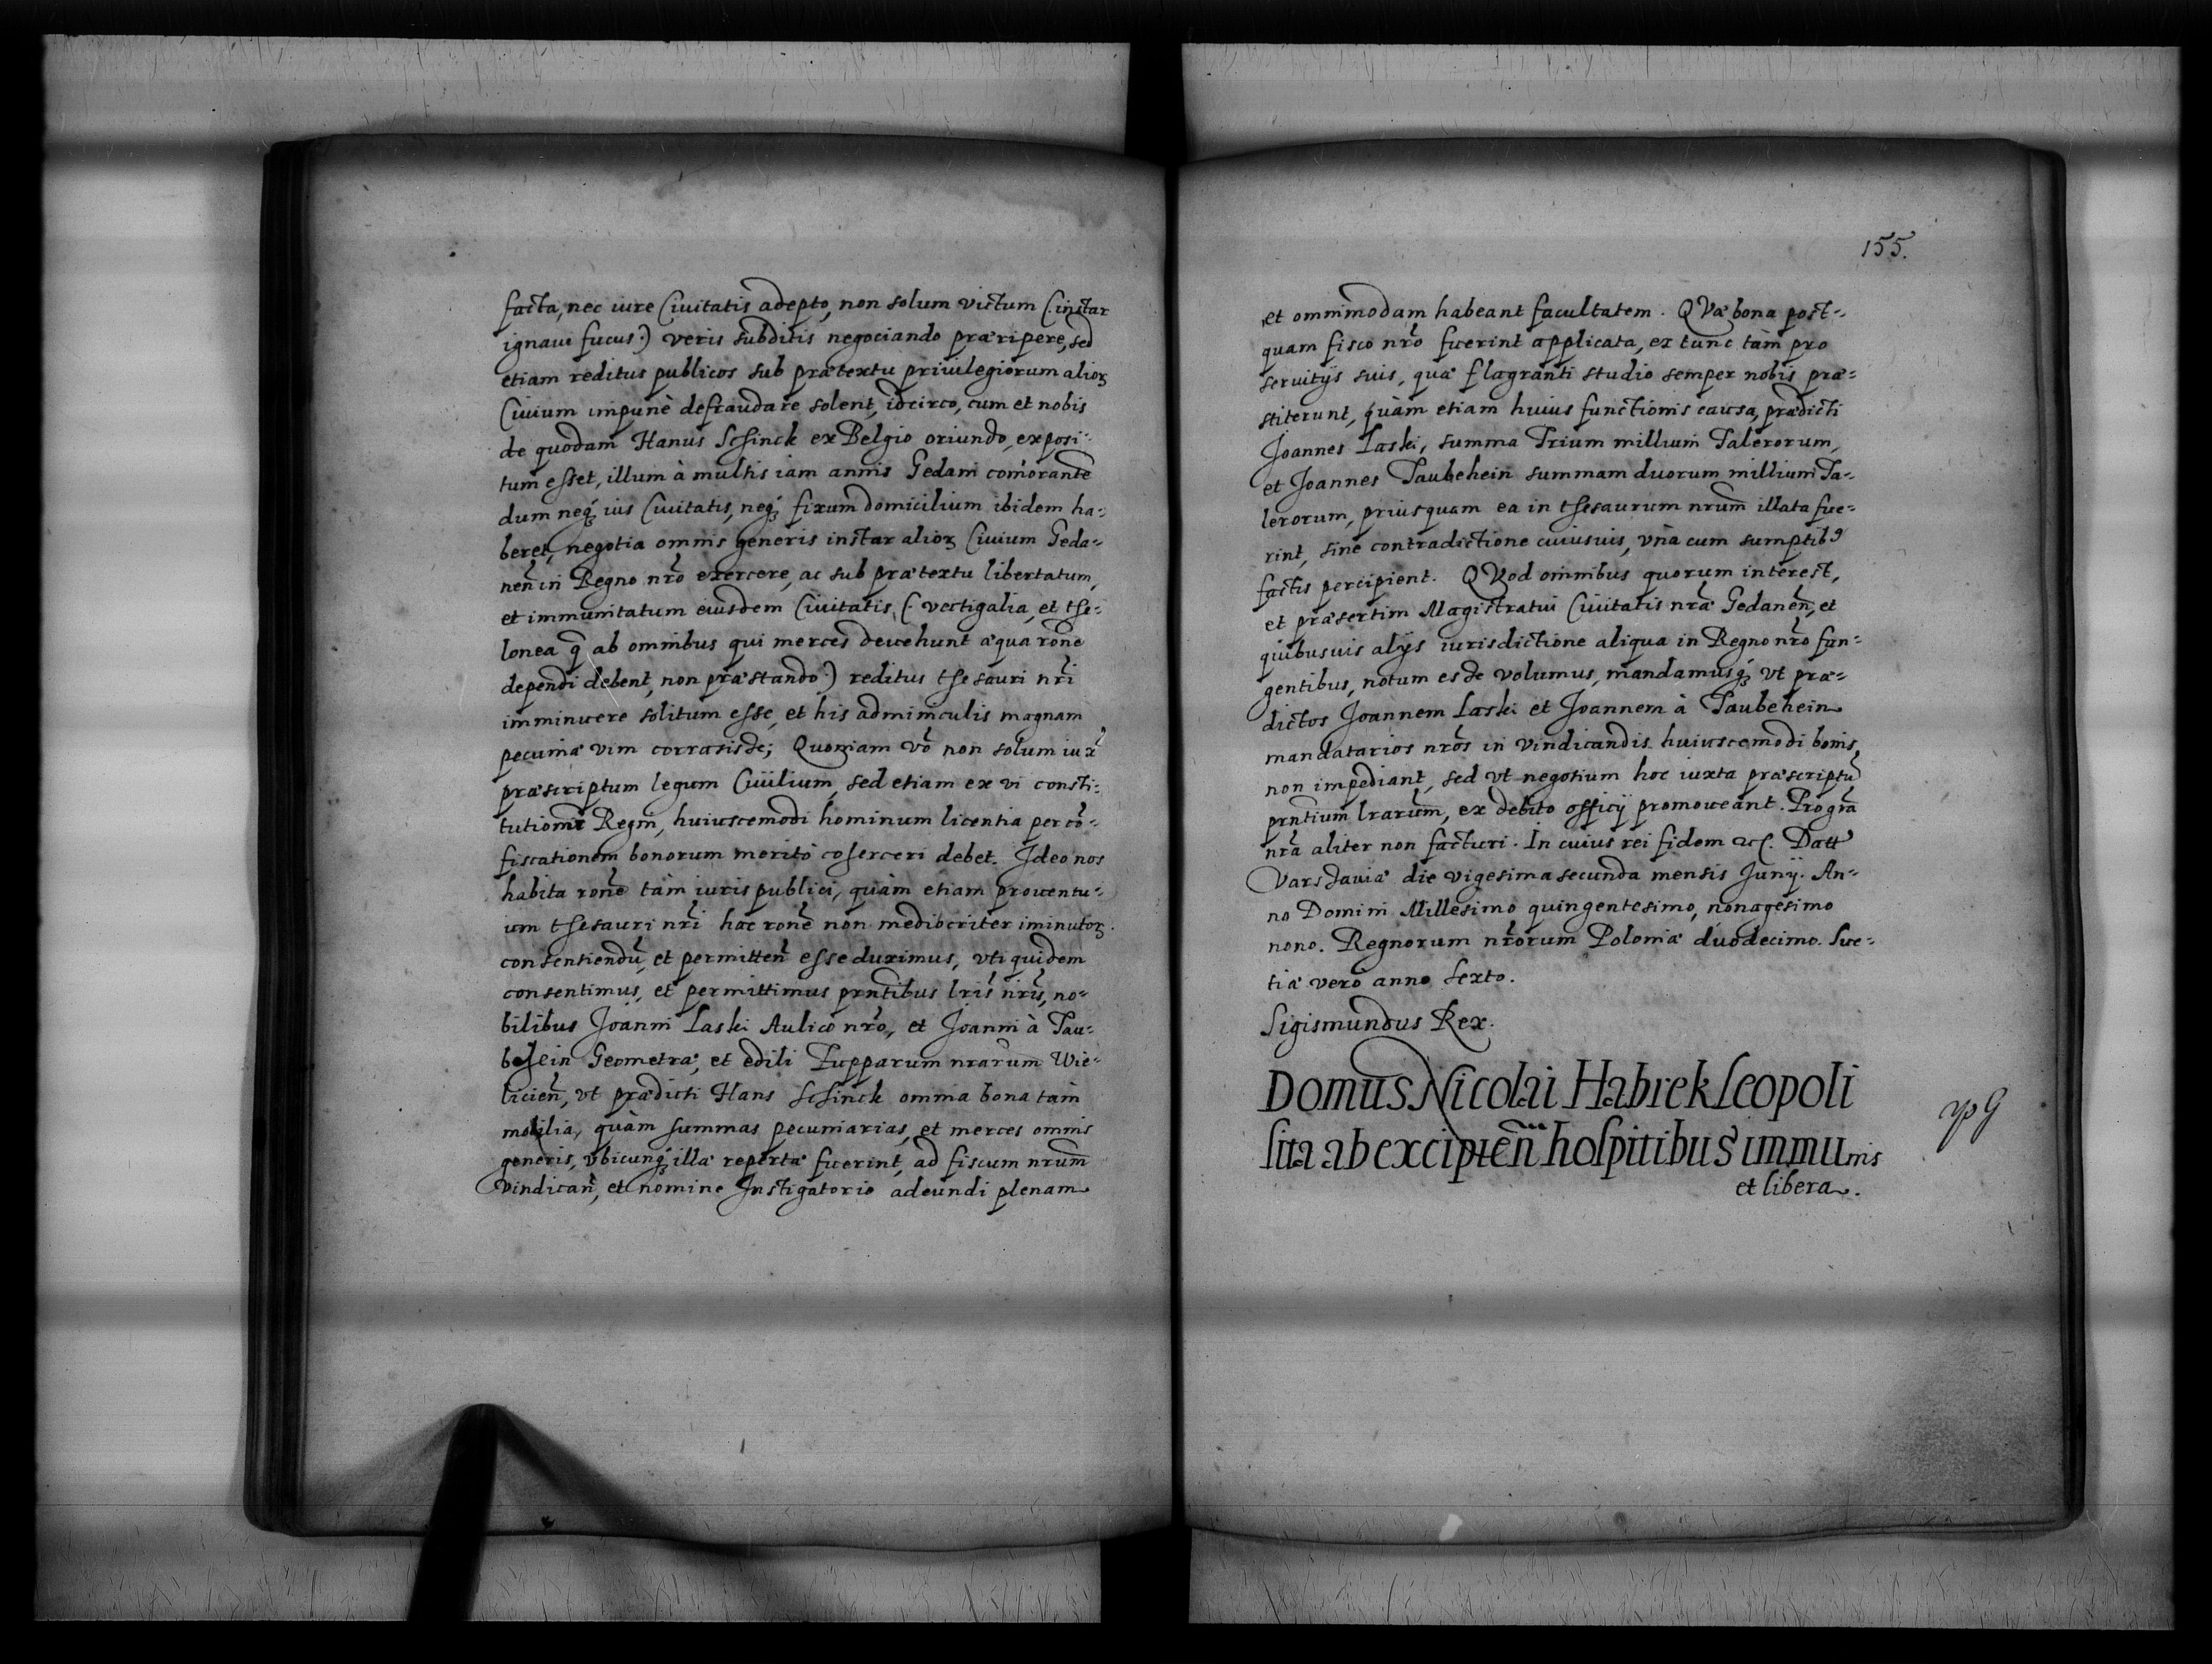 facta, nec iure Ciuitatis adepto, non solum victum (: instar
ignaui fucus :) veris subditis negociando præripere, sed
etiam reditus publicos sub prætextu priuilegiorum alioꝝ
Ciuium impunè defraudare solent, idcirco, cum et nobis
de quodam Hanus Schinck ex Belgio oriundo, exposi-
tum esset, illum à multis iam annis Gedani com̃orantẽ
dum neq; ius Ciuitatis, neq; fixum domicilium ibidem ha-
beret, negotia omnis generis instar alioꝝ Ciuium Geda-
neñ in Regno nr̃o exercere, ac sub prætextu libertatum,
et immunitatum eiusdem Ciuitatis (: vectigalia, et the-
lonea q̃ ab omnibus qui merces deuehunt æqua rõne
dependi debent, non præstando :) reditus thesauri nr̃i
imminuere solitum esse, et his adminiculis magnam
pecuniæ vim corrasisse; Quoniam vẽo non solum iux̃
præscriptum legum Ciuilium, sed etiam ex vi consti-
tutionis Regni, huiuscemodi hominum licentia per cõ-
fiscationem bonorum meritò coherceri debet. Ideo nos
habita rõne tàm iuris publici, quàm etiam prouentu-
um thesauri nr̃i hac rõne non mediocriter iminutoꝝ.
consentiendũ, et permitteñ esse duximus, vti quidem
consentimus, et permittimus prñtibus lr̃is nr̃is, no-
bilibus Joanni Laski Aulico nr̃o, et Joanni à Tau-
behein Geometræ, et edili Zupparum nrãrum Wie-
licieñ, vt prædicti Hans Schinck omnia bona tàm
mobilia, quàm summas pecuniarias, et merces omnis
generis, vbicunq; illæ repertæ fuerint, ad fiscum nrũm
vindicañ, et nomine Instigatorio adeundi plenam
155.
et omnimodam habeant facultatem. QVæ bona post-
quam fisco nr̃o fuerint applicata, ex tunc tàm pro
seruitijs suis, quæ flagranti studio semper nobis præ-
stiterunt, quàm etiam huius functionis causa, prædicti
Joannes Laski, summa Trium millium Talerorum,
et Joannes Taubehein summam duorum millium Ta-
lerorum, priusquam ea in thesaurum nrũm illata fue-
rint, sine contradictione cuiusuis, vnà cum sumptibꝰ
factis percipient. QVod omnibus quorum interest,
et præsertim Magistratui Ciuitatis nrã Gedaneñ, et
quibusuis alijs iurisdictione aliqua in Regno nr̃o fun-
gentibus, notum esse volumus, mandamusq; vt præ-
dictos Joannem Laski et Joannem à Taubehein
mandatarios nrõs in vindicandis huiuscemodi bonis,
non impediant, sed vt negotium hoc iuxta præscriptũ
prñtium lrarũm, ex debito officij promoueant. Pro grã
nrã aliter non facturi. In cuius rei fidem &c. Datt
Varssauiæ die vigesima secunda mensis Junij. An-
no Domini Millesimo quingentesimo, nonagesimo
nono. Regnorum nr̃orum Poloniæ duodecimo. Sue-
tiæ verò anno sexto.
Sigismundus Rex.
Domus Nicolai Habrek Leopoli
sita ab excipieñ hospitibus immunis
et libera.